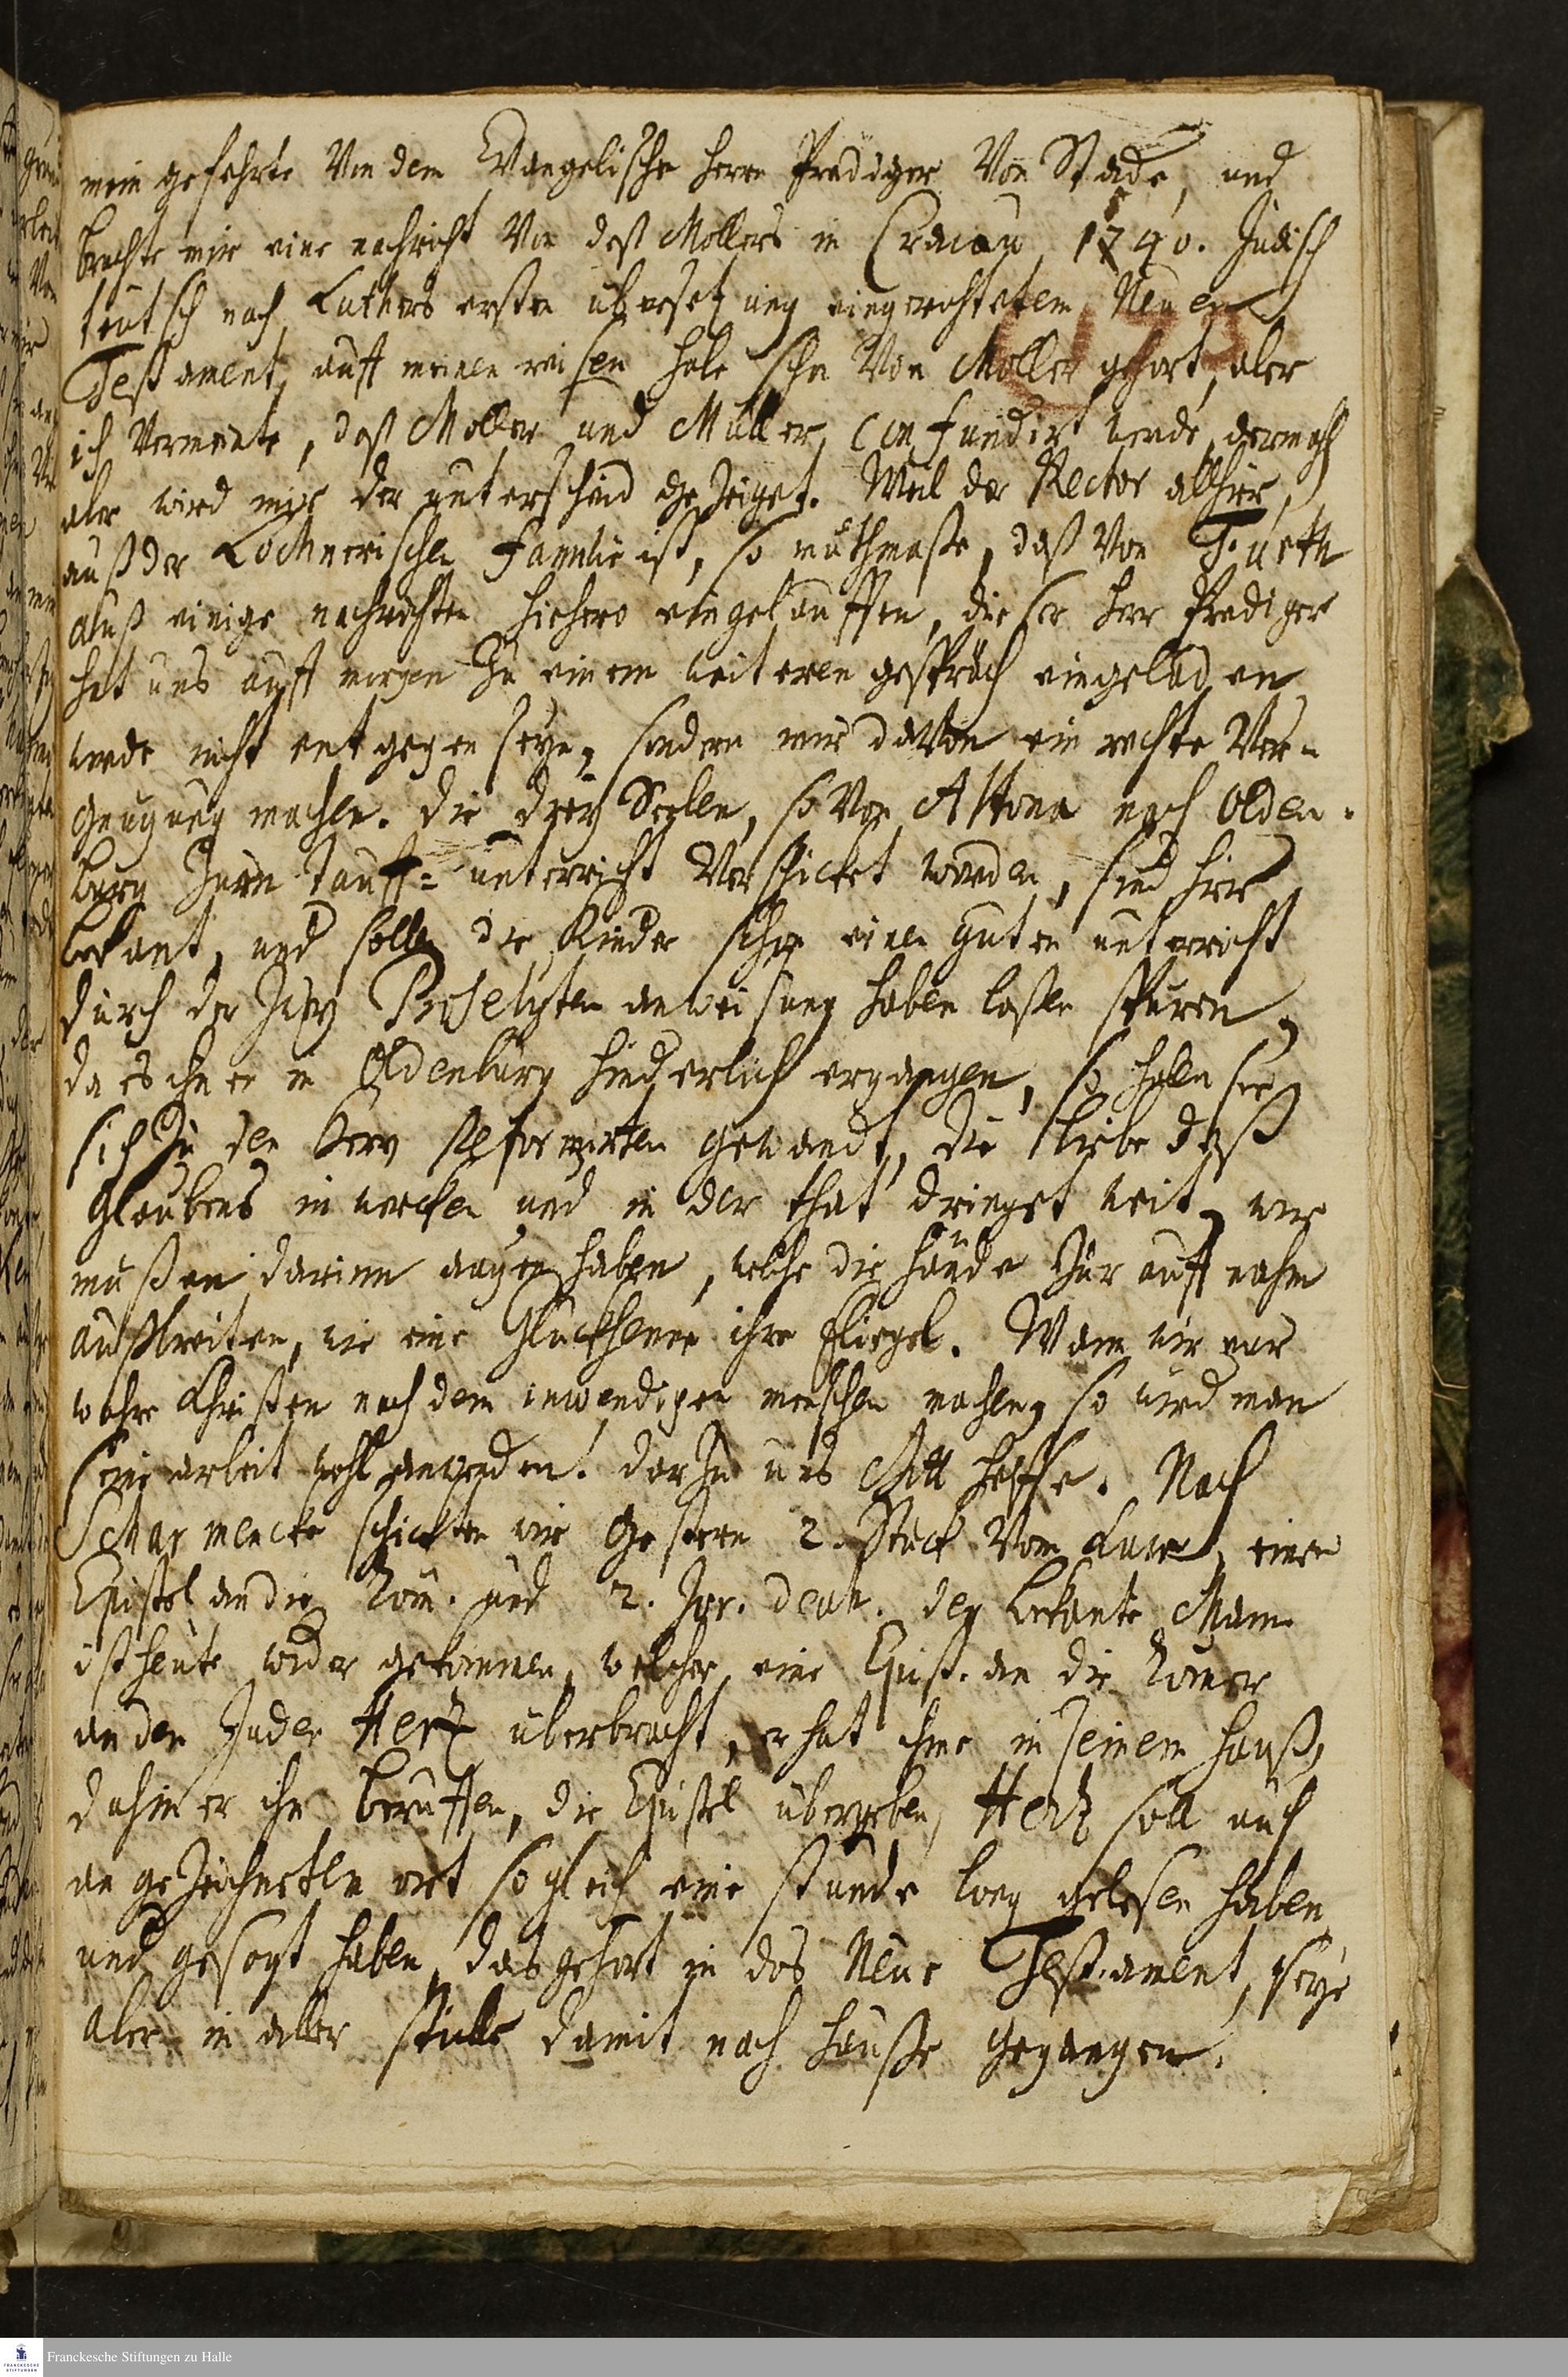 mein gefehrte Von dem Evangelische Herrn Prediger Von Stade, und
brachte mir eine nachricht Von deß Mollers in Cracau 1740. Jüdisch
teutsch nach Luthers ersten übersetzung eingerichtetem Neuen
Testament, auff meinen reisen habe schon Von Moller gehört, aber
ich Vermeinte, daß Moller und Müller, confundirt werde, dermahl
aber wird mir der unterscheid gezeiget. Weil der Rector allhier,
auß der Lochnerischen familie ist, so muthmaße, daß Von Fürth
auß einige nachrichten hiehero eingelauffen, dieser Herr Prediger
hat uns auff morgen zu einem weiteren gespräch eingeladen
werde nicht entgegen seyn, sondern mir davon ein rechte Ver-
gnügung machen. die drey Seelen, so Von Altona nach Olden-
burg zum Tauff-unterricht Verschicket worden, sind hier
bekant, und sollen die Kinder schon einen guten unterricht
durch der Proselyten anweisung haben laßen spüren,
da es ihnen in Oldenburg hinderlich ergangen, so haben sie
sich zu den Herrn Reformirten gewandt, die Liebe deß
Glaubens in wercken und in der that dringet weit, wir
mußen darinn augen haben, welche die hände zur auffnahm
außbreiten, wie eine Gluckhenne ihre fliegel. Wann wir nur
wahre Christen nach dem inwendigen menschen machen, so wird man
seine arbeit wohl anwenden. darzu uns Gott helffe. Nach
Scharmencke schickten wir gestern 2. Stück Vom Luca, eine
Epistel an die Röm. und 2. der bekante Mann
ist heute wider gekommen, welcher eine Epist. an die Römer
an den Juden Hertz überbracht, er hat ihme in seinem hauß,
dahin er ihn beruffen, die Epistel übergeben, Hertz soll auch
an gezeichneten ort sogleich eine stunde lang gelesen haben
und gesagt haben, das gehört in das Neue Testament, seye
aber in aller stille damit nach hauße gegangen.
Franckesche Stiftungen zu Halle